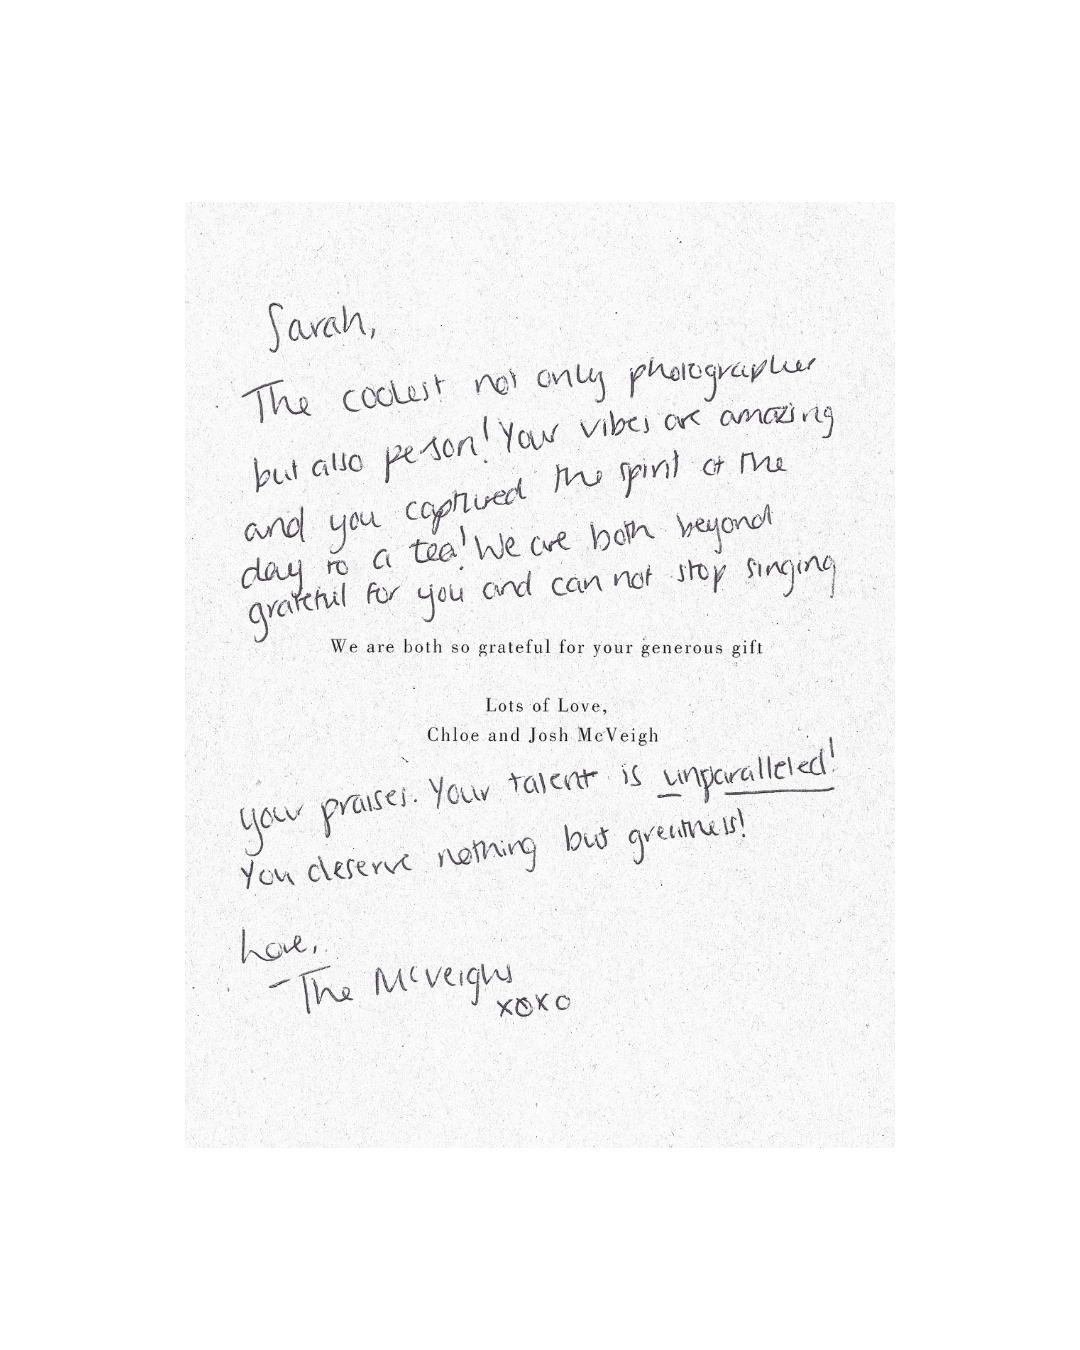 Sarah,
The coolest not only photographer
but also person! Your vibes are amazing
and you captured the spirit of the
day to a tea! We are both beyond
grateful for you and can not stop singing
We are both so grateful for your generous gift
Lots of Love,
Chloe and Josh McVeigh
your praises. Your talent is unparalleled!
You deserve nothing but greatness!
Love,
- The McVeighs
xoxo